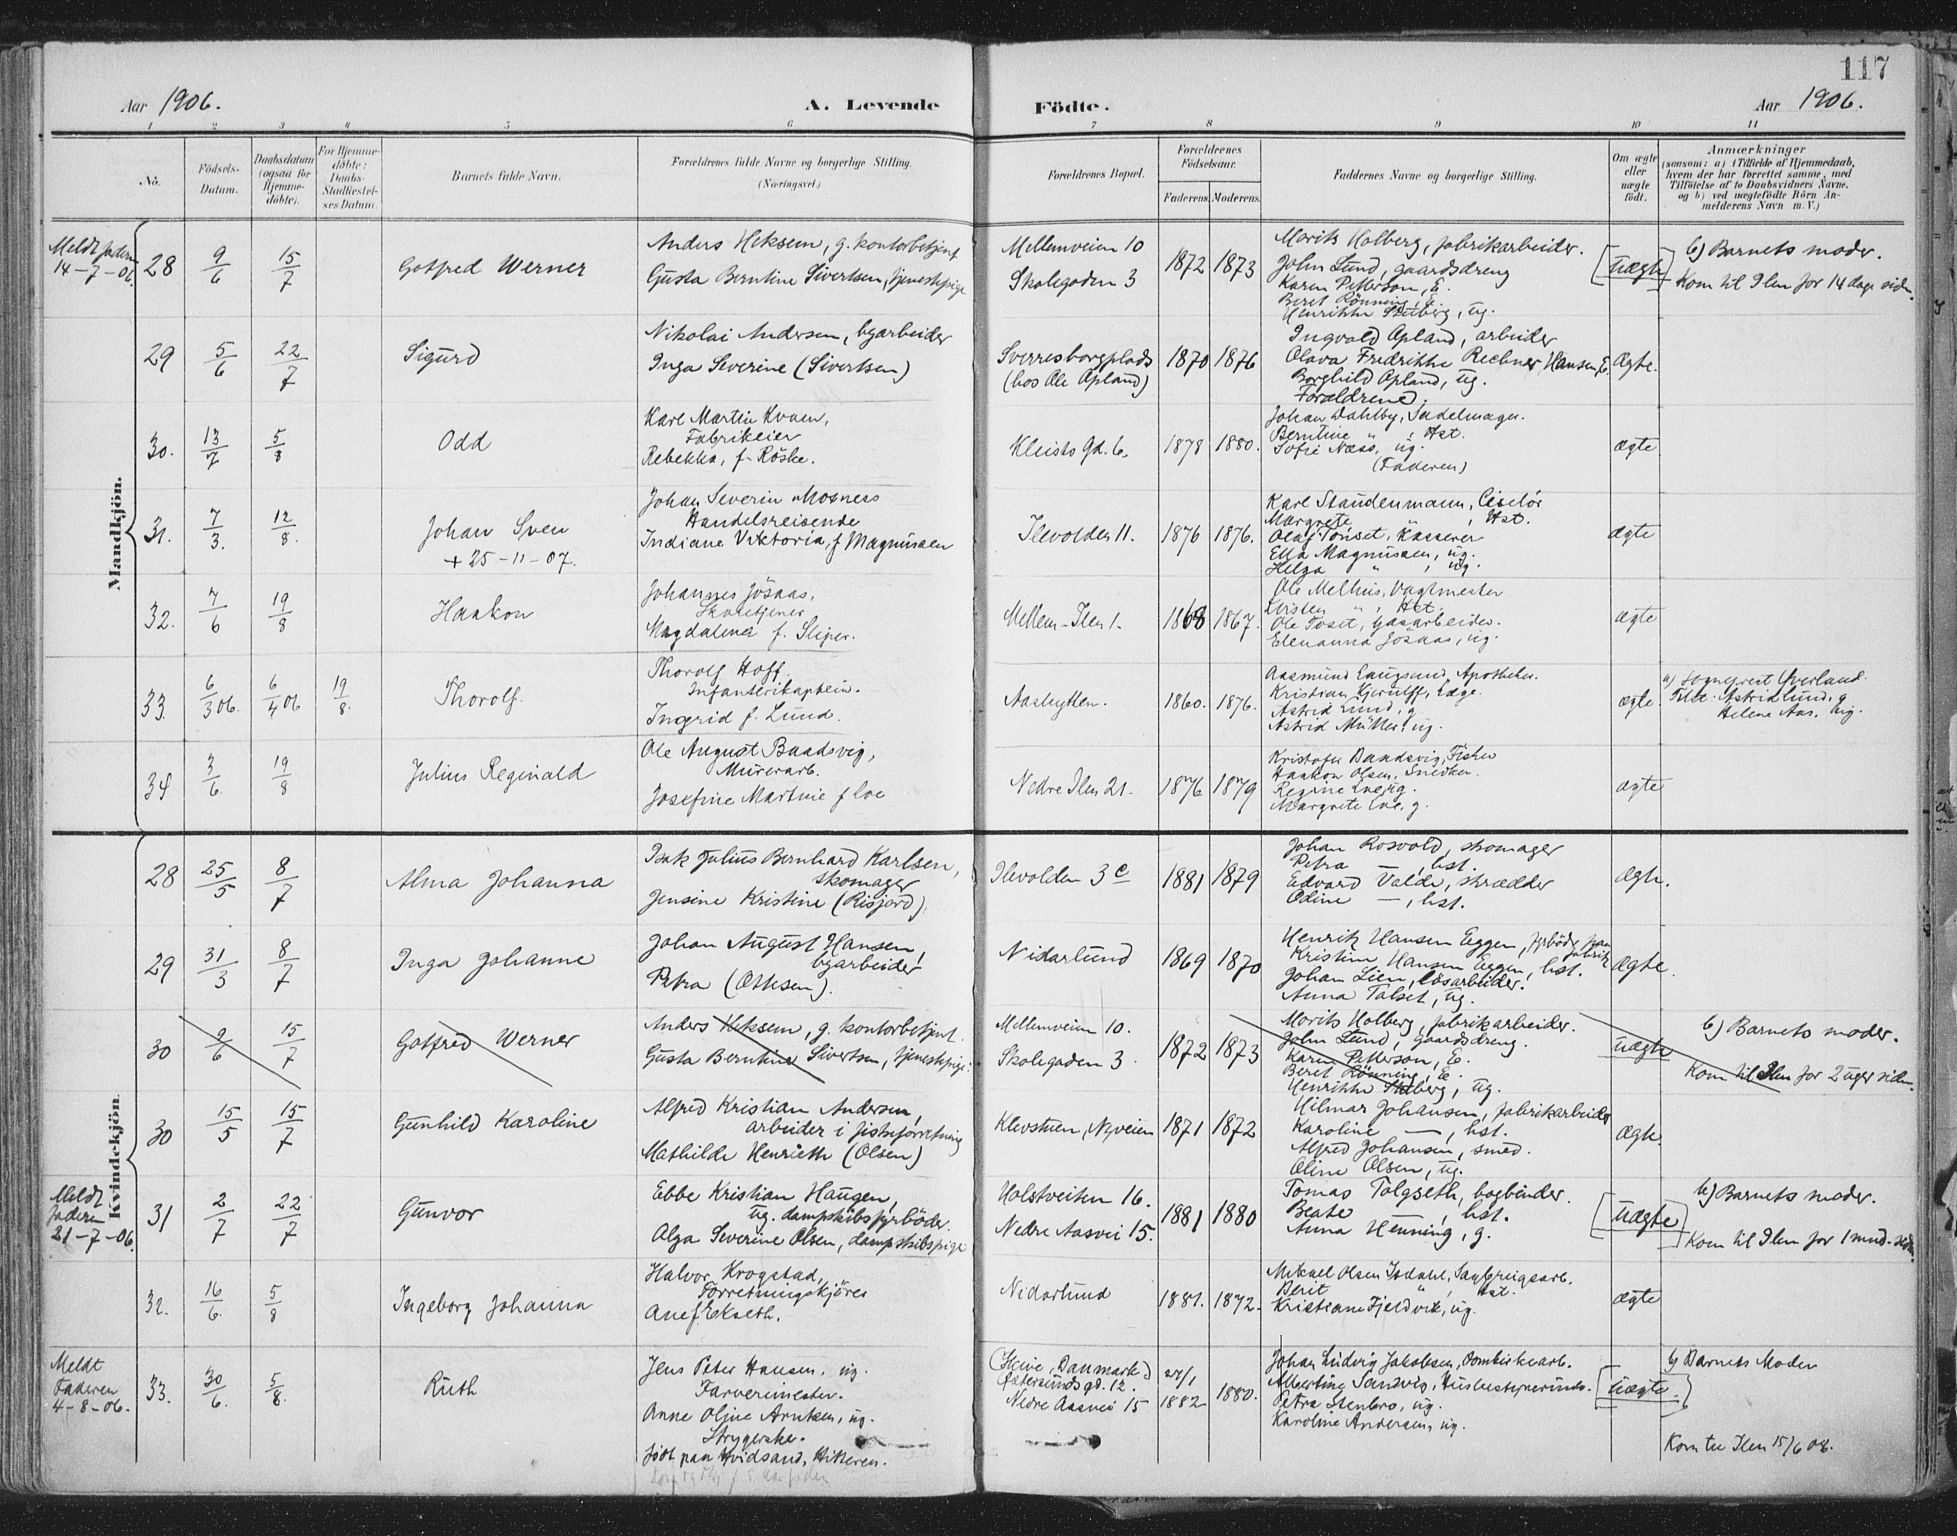 117
Aar 1906. A. Levende Födte. Aar 1906.
1 2 3 4 5 6 7 8 9 10 11
No.
Födsels-Datum.
Daabsdatum (ogsaa for Hjemme-döbte).
For Hjemme-döbte: Daabs-Stadfæstel-ses Datum.
Barnets fulde Navn.
Forældrenes fulde Navne og borgerlige Stilling.
(Næringsvei.)
Forældrenes Bopæl.
Forældrenes Födselsaar.
Faderens. Moderens.
Faddernes Navne og borgerlige Stilling.
Om ægte eller uægte födt.
Anmærkninger
(saasom: a) i Tilfælde af Hjemmedaab,
hvem der har forrettet samme, med
Tilföielse af to Daabsvidners Navne.
og b) ved uægtefödte Börn An-
melderens Navn m. V.)
Mandkjön.
Meldt faderen
14-7-06.
28 9/6 15/7 Gotfred Werner
Anders Heksem, g. kontorbetjent
Gusta Berntine Sivertsen, tjenestepige
Mellemveien 10
Skolegaden 3
1872 1873
Morits Holberg, fabrikarbeider.
John Lund, gaardsdreng
Karen Petterson, E.
Beret Rönning, E.
Henrikke Stuberg, ug.
uægte
b) Barnets moder.
Kom til Ilen for 14 dage siden.
29 5/6 22/7 Sigurd
Nikolai Andersen, byarbeider
Inga Severine (Sivertsen)
Sverresborgplads
(hos Ole Opland)
1870 1876
Ingvald Opland, arbeider
Olava Fredrikke Rechner Hansen, E.
Borghild Opland, ug.
Forældrene.
Ægte.
30. 13/7 5/8 Odd
Karl Martin Kvaen,
Fabrikeier
Rebekka, f. Röske.
Kleists Gd. 6.
1878 1880.
Johan Dahlby, Sadelmager.
Berntine " , Hst.
Sofie Næss, ug.
(Faderen)
ægte
31. 7/3. 12/8. Johan Sven
+ 25-11-07.
Johan Severin Mosness
Handelsreisende
Indiane Viktoria, f Magnusaen
Ilevolden 11.
1876 1876.
Karl Staudenmann, Ciselör
Margrete " , Hst.
Olaf Tönset, Kasserer
Ella Magnusaen, ug.
Helga " , ug.
ægte
32. 7/6 19/8 Haakon
Johannes Jösaas,
Skoletjener
Magdalena f. Sliper.
Mellem-Ilen 1.
1868 1867.
Ole Melhus, Vagtmester
Kirsten " , Hst.
Ole Toset, Gasarbeider.
Elenanna Jösaas, ug.
ægte
33. 6/3 06. 6/4 06 19/8. Thorolf.
Thorolf Hoff.
Infanterikaptein.
Ingrid f. Lund.
Aashytten.
1860. 1876.
Aasmund Laugsand, Apotheker.
Kristian Kjerulff, Læge.
Astrid Lund, g
Astrid Müller, ug.
ægte
a) Sogneprest Överland.
Tilst. Astrid Lund, g
Helene Aas, ug.
34 3/6. 19/8 Julius Reginald
Ole August Baadsvig,
Murerarb.
Josefine Martine f Loe
Nedre Ilen 21.
1876 1879
Kristofer Baadsvig, Fisker
Haakon Olsen, Snedker.
Regine Loe, g.
Margrete Loe, g.
ægte
Kvindekjön.
28 25/5 8/7 Alma Johanna
Isak Julius Bernhard Karlsen,
skomager
Jensine Kristine (Risjord)
Ilevolden 3 c
1881 1879
Johan Rosvold, skomager
Petra — , hst.
Edvard Valde, skrædder
Odine — , hst.
ægte.
29 31/3 8/7 Inga Johanne
Johan August Hansen,
byarbeider
Petra (Ottesen).
Nidarlund
1869 1870
Henrik Hansen Eggen, fyrböder
Kristine Hansen Eggen, hst.
Johan Lien, lösarbeider.
Anna Talset, ug.
Ægte.
30 9/6 15/7 Gotfred Werner
Anders Heksem, g. kontorbetjent.
Gusta Berntine Sivertsen, tjenestepige.
Mellemveien 10.
Skolegaden 3.
1872 1873
Morits Holberg, fabrikarbeider.
John Lund, gaardsdreng.
Karen Petterson, E.
Beret Rönning, E.
Henrikke Stuberg, ug.
uægte
b) Barnets moder.
Kom til Ilen for 2 uger siden.
30 15/5 15/7 Gunhild Karoline
Alfred Kristian Andersen,
arbeider i fiskeforretning
Mathilde Henriette (Olsen)
Klevstuen, Nyveien
1871 1872
Hilmar Johansen, fabrikarbeider
Karoline — , hst.
Alfred Johansen, smed.
Oline Olsen, ug.
Ægte.
Meldt
faderen
21-7-06.
31 2/7 22/7 Gunvor
Ebbe Kristian Haugen,
ug. dampskibsfyrböder.
Olga Severine Olsen, dampskibspige
Holstveiten 16.
Nedre Aasvei 15.
1881 1880
Tomas Tolgseth, bogbinder.
Beate — , hst.
Anna Henning, g.
uægte
b) Barnets moder.
Kom til Ilen for 1 mnd. siden.
32. 16/6. 5/8 Ingeborg Johanna
Halvor Krogstad,
Forretningskjörer
Ane f. Ekseth.
Nidarlund
1881. 1872.
Mikael Olsen Isdahl, Sagbrugsarb.
Berit " , Hst.
Kristiane Fjeldvik, ug.
ægte
Meldt
Faderen
4-8-06.
33. 30/6. 5/8. Ruth
Jens Peter Hansen, ug.
Farvermester.
Anne Oline Arntsen, ug.
Strygerske.
födt paa Kvidsand, Hitteren.
(Skive, Danmark)
Östersundsgd. 12.
Nedre Aasvei 15
27/1 1882 1880.
Johan Ludvig Jakobsen, Domkirkearb.
Albertine Sandvig, Husbestyrerinde.
Petra Stenbro, ug.
Karoline Andersen, ug.
uægte.
b) Barnets Moder
Kom til Ilen 15/6 06.